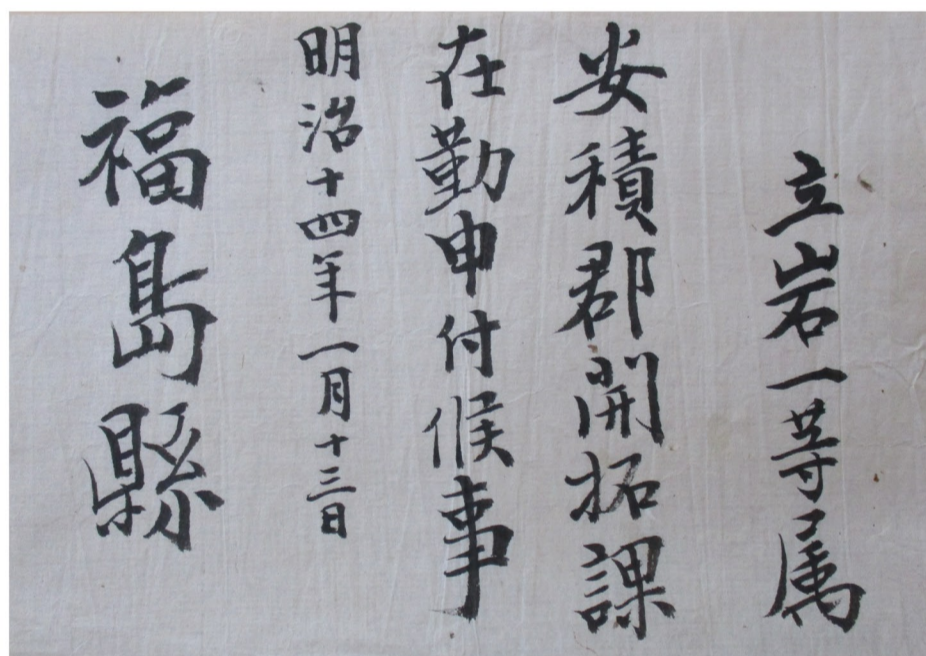 立岩一等属
安積郡開拓課
在勤申付候事
明治十四年一月十三日
福島縣